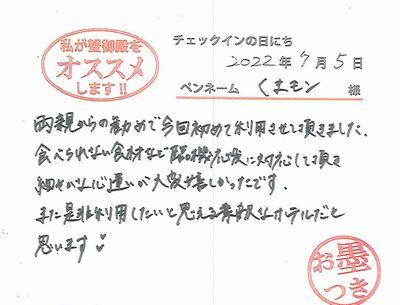 私が蟹御殿を
オススメ
します!!
チェックインの日にち
2022年7月5日
ペンネーム くまモン 様
両親からの勧めで今回初めて利用させて頂きました。
食べられない食材など臨機応変に対応して頂き
細やかな心遣いが大変嬉しかったです。
また是非利用したいと思える素敵なホテルだと
思います♡
お墨
つき